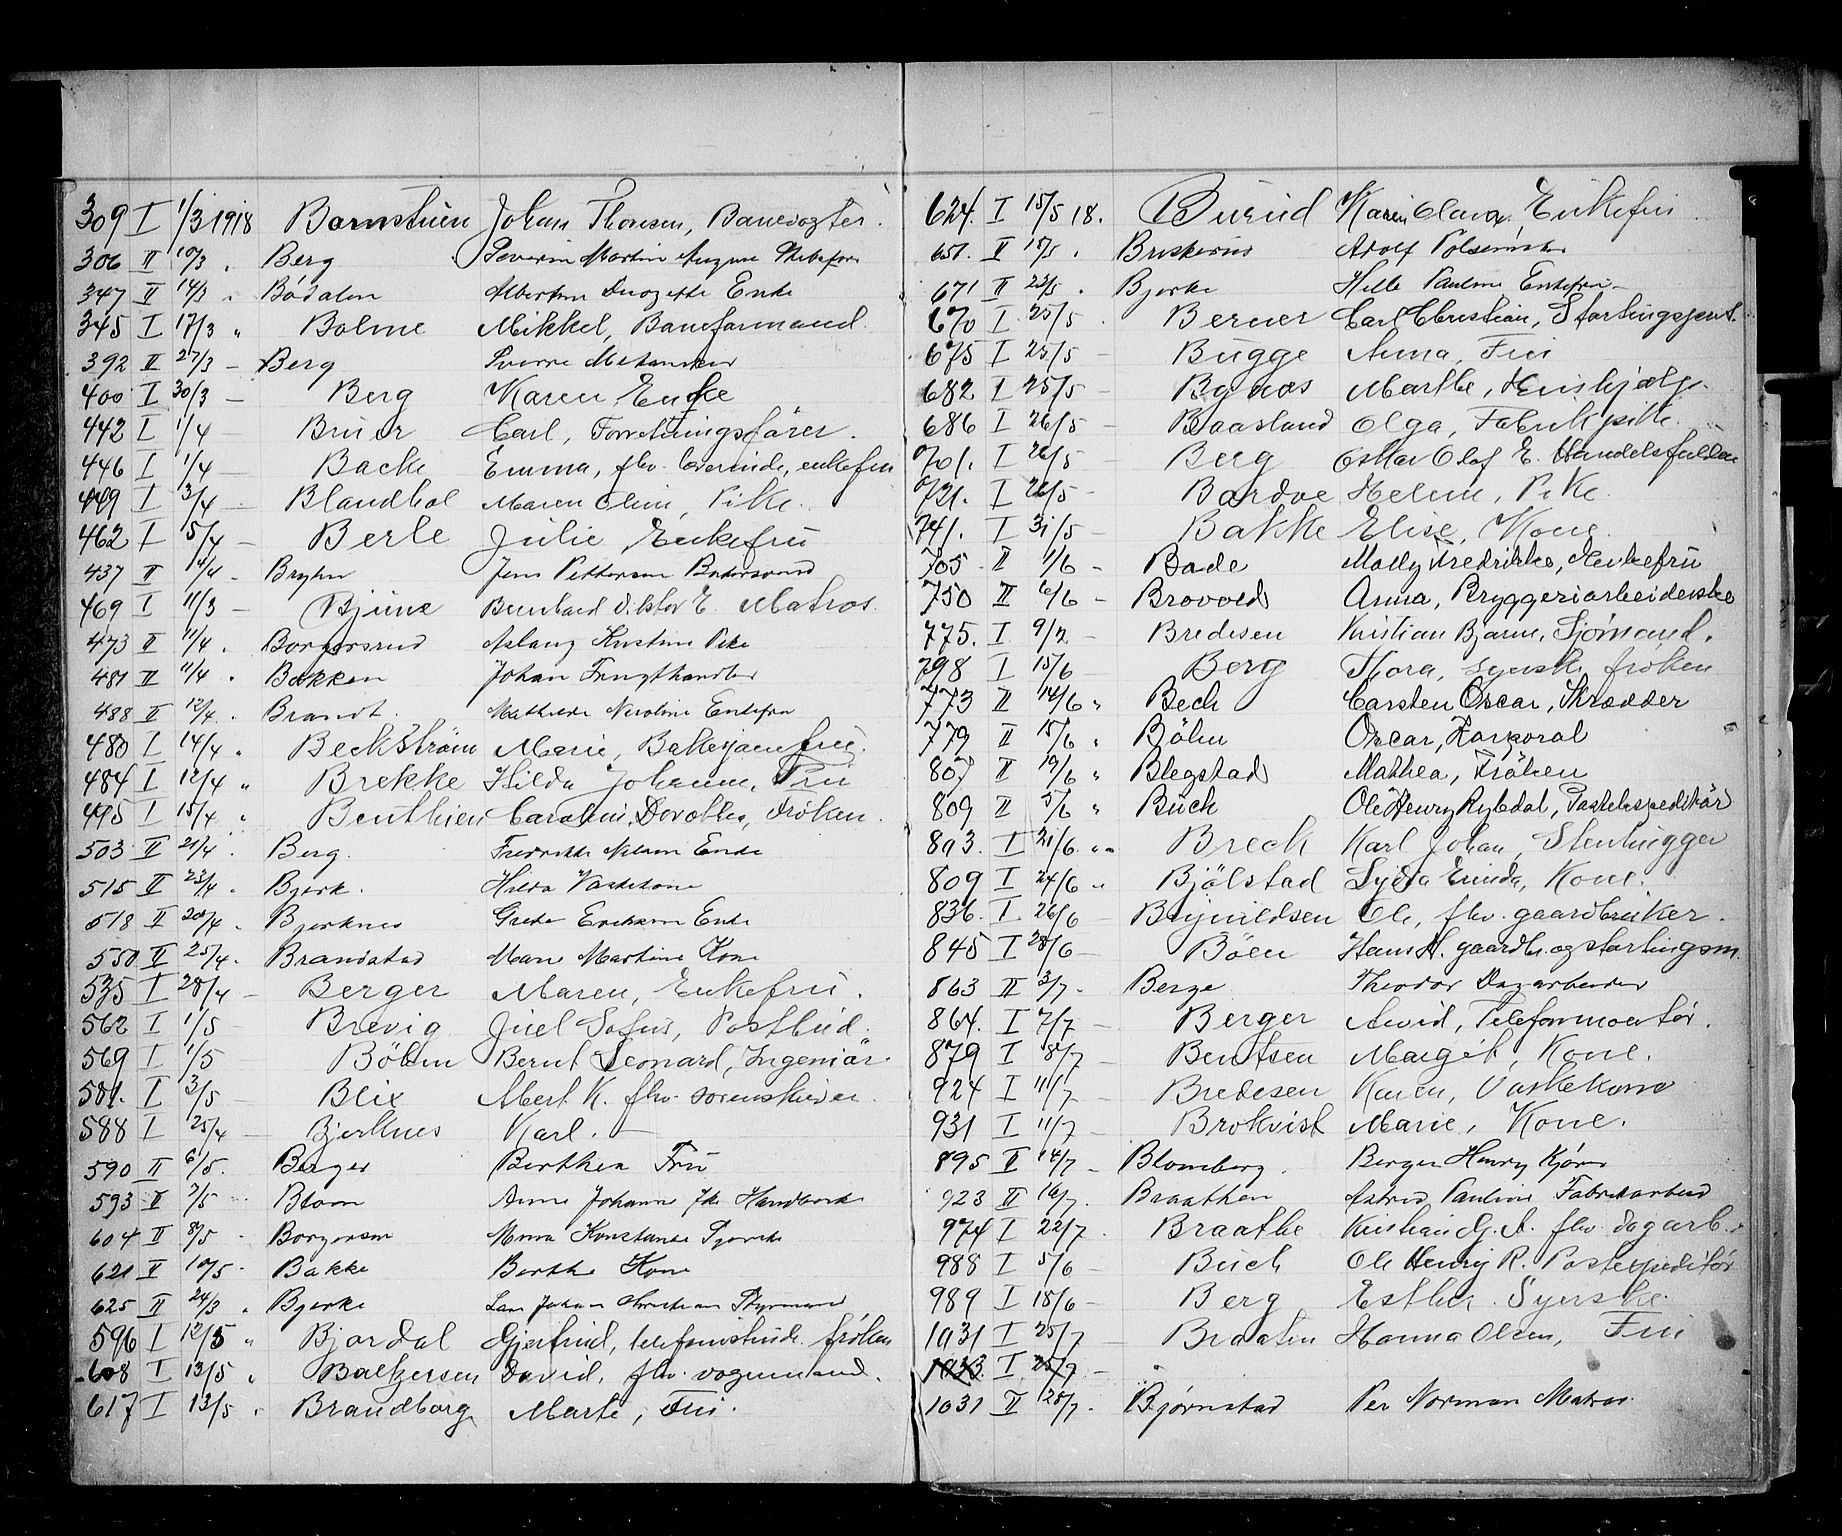 309 I 1/3 1918 Bornstuen Johan Thoresen, Banevogter.
306 II 10/3 " Berg Severin Martin August
347 II 14/3 " Bödalen Albertine Enke
345 I 17/3 " Bolme Mikkel, Baneformand.
392 II 27/3 — Berg Sverre
400 I 30/3 — Berg Karen Enke
442 I 1/4 Bruer Carl, Forretningsförer.
446 I 1/4 — Backe Emma, fhv. enkefru
449 I 3/4 — Blandhol Maren Oline, Pike.
462 I 5/4 — Berle Julie Enkefru
437 II 14/4 " Bryhn Jens Pettersen
469 I 11/3 — Bjune Bernhard Viktor E. Matros.
473 II 11/4 " Borgersrud Aslaug Kristine Pike
481 II 11/4 " Bakken Johan Frugthandler
488 II 12/4 " Brandt Mathilde Nicoline Enkefru
480 I 14/4 " Beckström Marie, fru.
484 I 12/4 " Brekke Hilda Johanne, Fru
495 I 15/4 " Benthien Caroline Dorothea, Fröken.
503 II 21/4 " Berg. Fredrikke Nilsen Enke
515 II 23/4 " Bjerk. Hilda Vaskekone
518 II 20/4 " Bjerknes Grete Eriksen Enke
550 II 25/4 " Brandstad Mare Martine Kone
535 I 28/4 — Berger Maren, Enkefru.
562 I 1/5 — Brevig Juel Sofus, Postbud.
569 I 1/5 Böhm Bernt Leonard, Ingeniör.
581. I 3/5 — Blix Albert K. fhv. sorenskriver.
588 I 25/4 — Bjerknes Karl. —
590 II 6/5. Berger Berthea Fru
593 II 7/5 Blom Anne Johanne
604 II 8/5 " Borgersen Mina Konstance
621 II 10/5 " Bakke Berthe Kone
625 II 24/3 " Bjerke Lars Johan Christian Styrmand
596 I 12/5 " Bjordal Gjertrud, fröken
608 I 13/5 " Baltzersen David, fhv. vognmand.
617 I 13/5 " Brandborg Marte, Fru.
624. I 15/5 18. Burud Karen Olava. Enkefru
651. II 15/5 " Briskerud Adolf Pölsemaker
671 II 23/5 " Bjerke Helle Pauline Enkefru —
670 I 25/5 " Berner Carl Christian, Stortingspræst.
675 I 25/5 — Bugge Anna, Fru
682 I 25/5 — Bynæs Marthe, Hushjælp.
686 I 26/5 — Baasland Olga, Fabrikpike.
701. I 26/5 Berg Oskar Olaf E. Handelsfuldm.
721. I 26/5 — Bardoe Helene, Pike.
741. I 31/5 — Bakke Elise, Kone.
705 II 1/6 — Bade Molly Fredrikke, Enkefru
750 II 6/6 — Brovold Anna, Bryggeriarbeiderske
775. I 9/2 — Bredesen Kristian Bjarne, Sjömand.
798 I 15/6 Berg Thora, syerske, fröken
773 II 14/6 " Bech Carsten Oscar, Skrædder
779 II 15/6 " Böhm Oscar, Korporal
807 II 19/6 " Blegstad Mathea, Fröken
809 II 5/6 " Buch Ole Henry Rybdal, Postekspeditör
803. I 21/6. " Brech Karl Johan, Stenhugger
809 I 24/6 " Bjölstad Lyda Erinda, Kone.
836. I 26/6 — Brynildsen Ole, fhv. gaardbruker.
845 I 28/6 — Böen Hans H. gaardbr. og stortingsm.
863 II 3/7. Berge Theodor Dagarbeider
864. I 7/7 — Berger Arvid, Telefonmontör.
879 I 8/7 — Bentsen Margit, Kone.
924 I 11/7 — Bredesen Karen, Vaskekone
931 I 11/7 — Brokvist Marie, Kone.
895 II 14/7 — Blomberg. Berger Henry Kjörer
923 II 16/7. Braathen Astrid Pauline Fabrikarbeid
974 I 22/7 . Braathe Kristian G. A. fhv. dagarb.
988 I 5/6 Buch Ole Henry R. Postexpeditör
989 I 18/6 — Berg Esther. Syerske.
1031 I 25/7 — Braaten Hanna Olsen, Fru
1033. I 25/7 —
1031 II 28/7 . Bjørnstad Per Norman Matros.